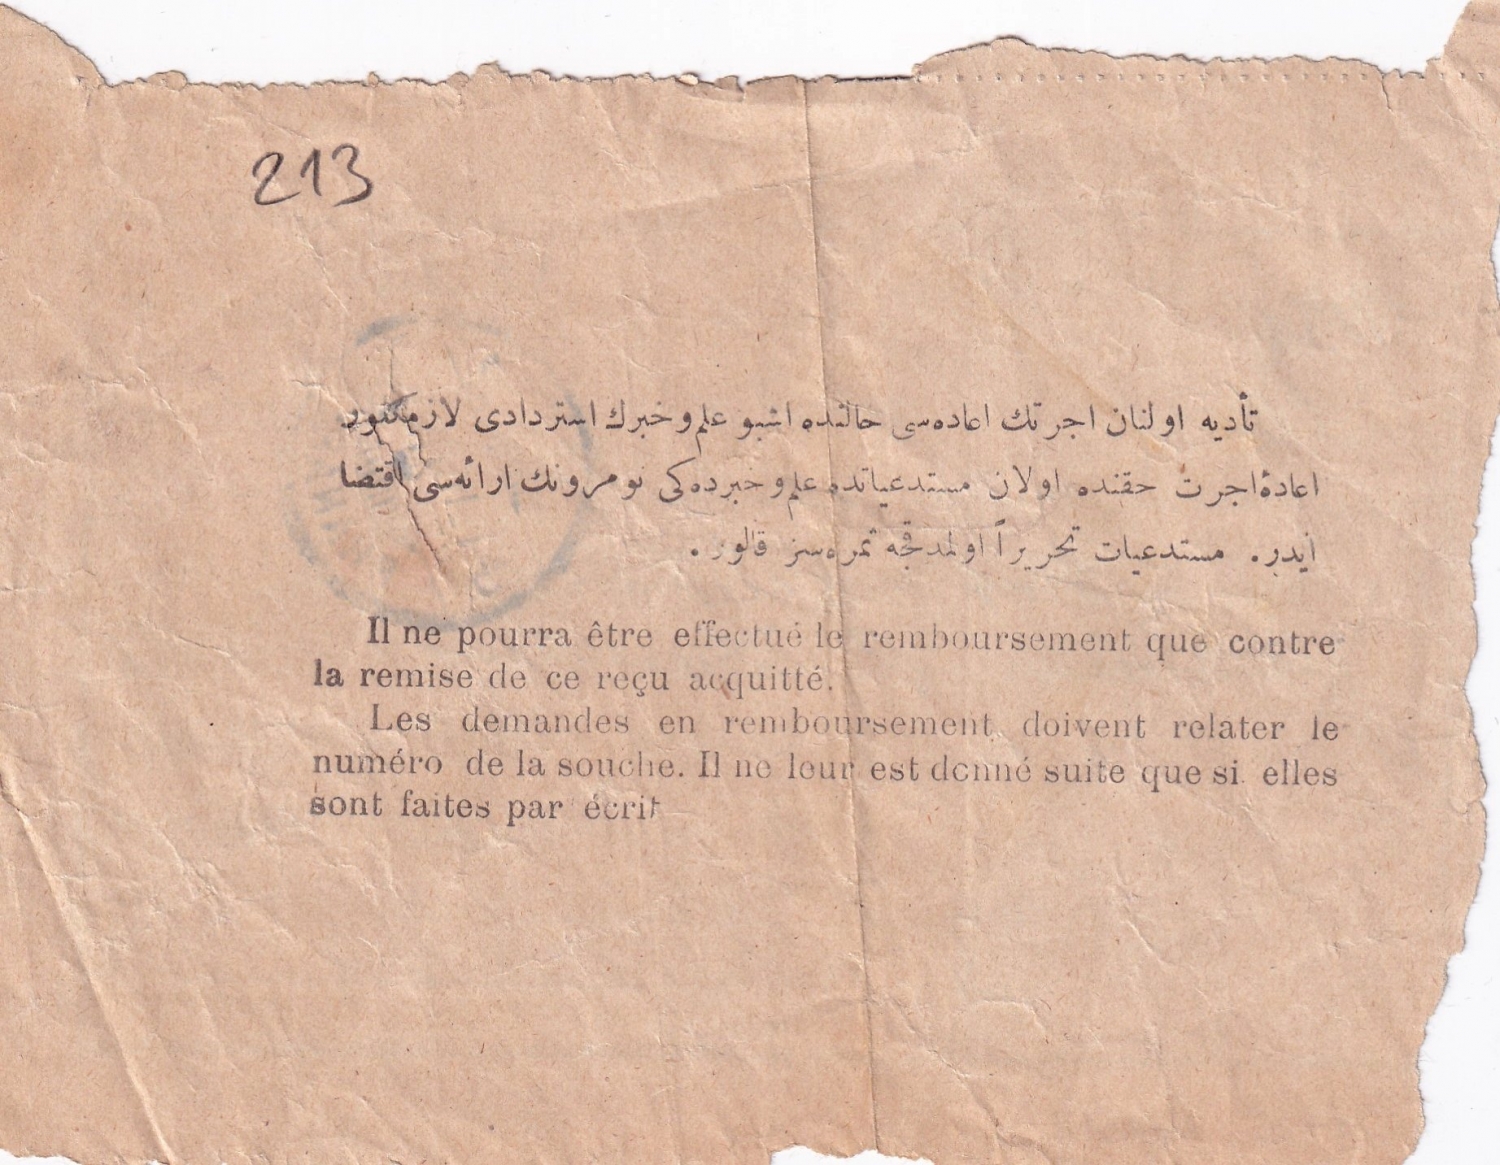 213
تأدیه اولنان اجرتك اعاده‌سی حالنده اشبو علم و خبرك استردادی لازمكلور
اعادۀ اجرت حقنده اولان مستدعیاتده علم و خبرده‌كی نومرونك ارائه‌سی اقتضا
ایدر. مستدعیات تحریراً اولمدقجه ثمره‌سز قالور.
Il ne pourra être effectué le remboursement que contre
la remise de ce reçu acquitté.
Les demandes en remboursement doivent relater le
numéro de la souche. Il ne leur est donné suite que si elles
sont faites par écrit